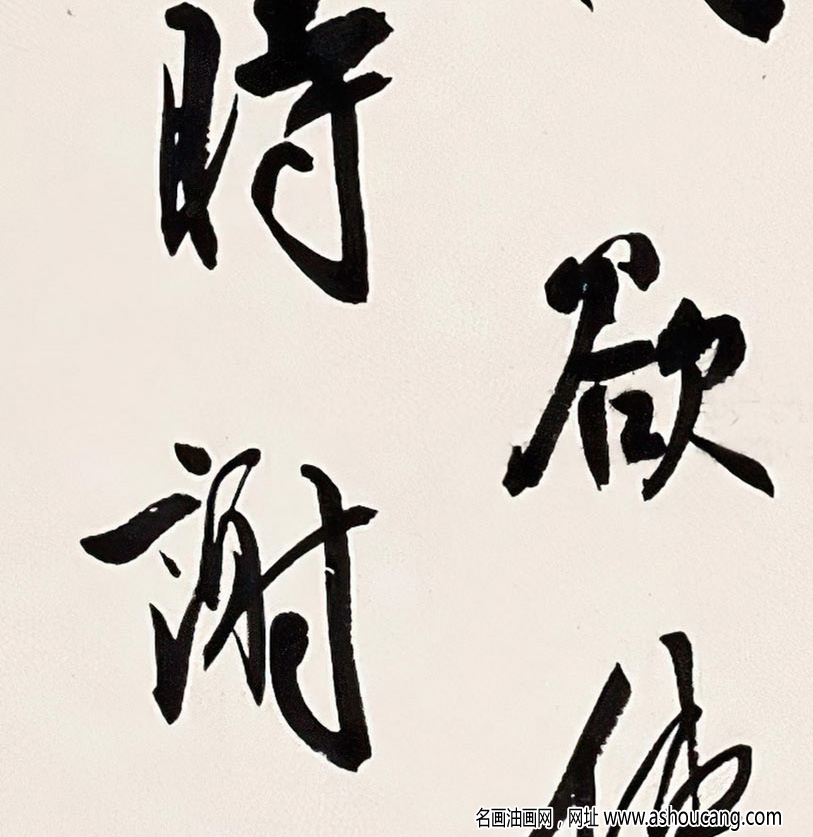 欲
時謝
名画油画网，网址 www.ashoucang.com